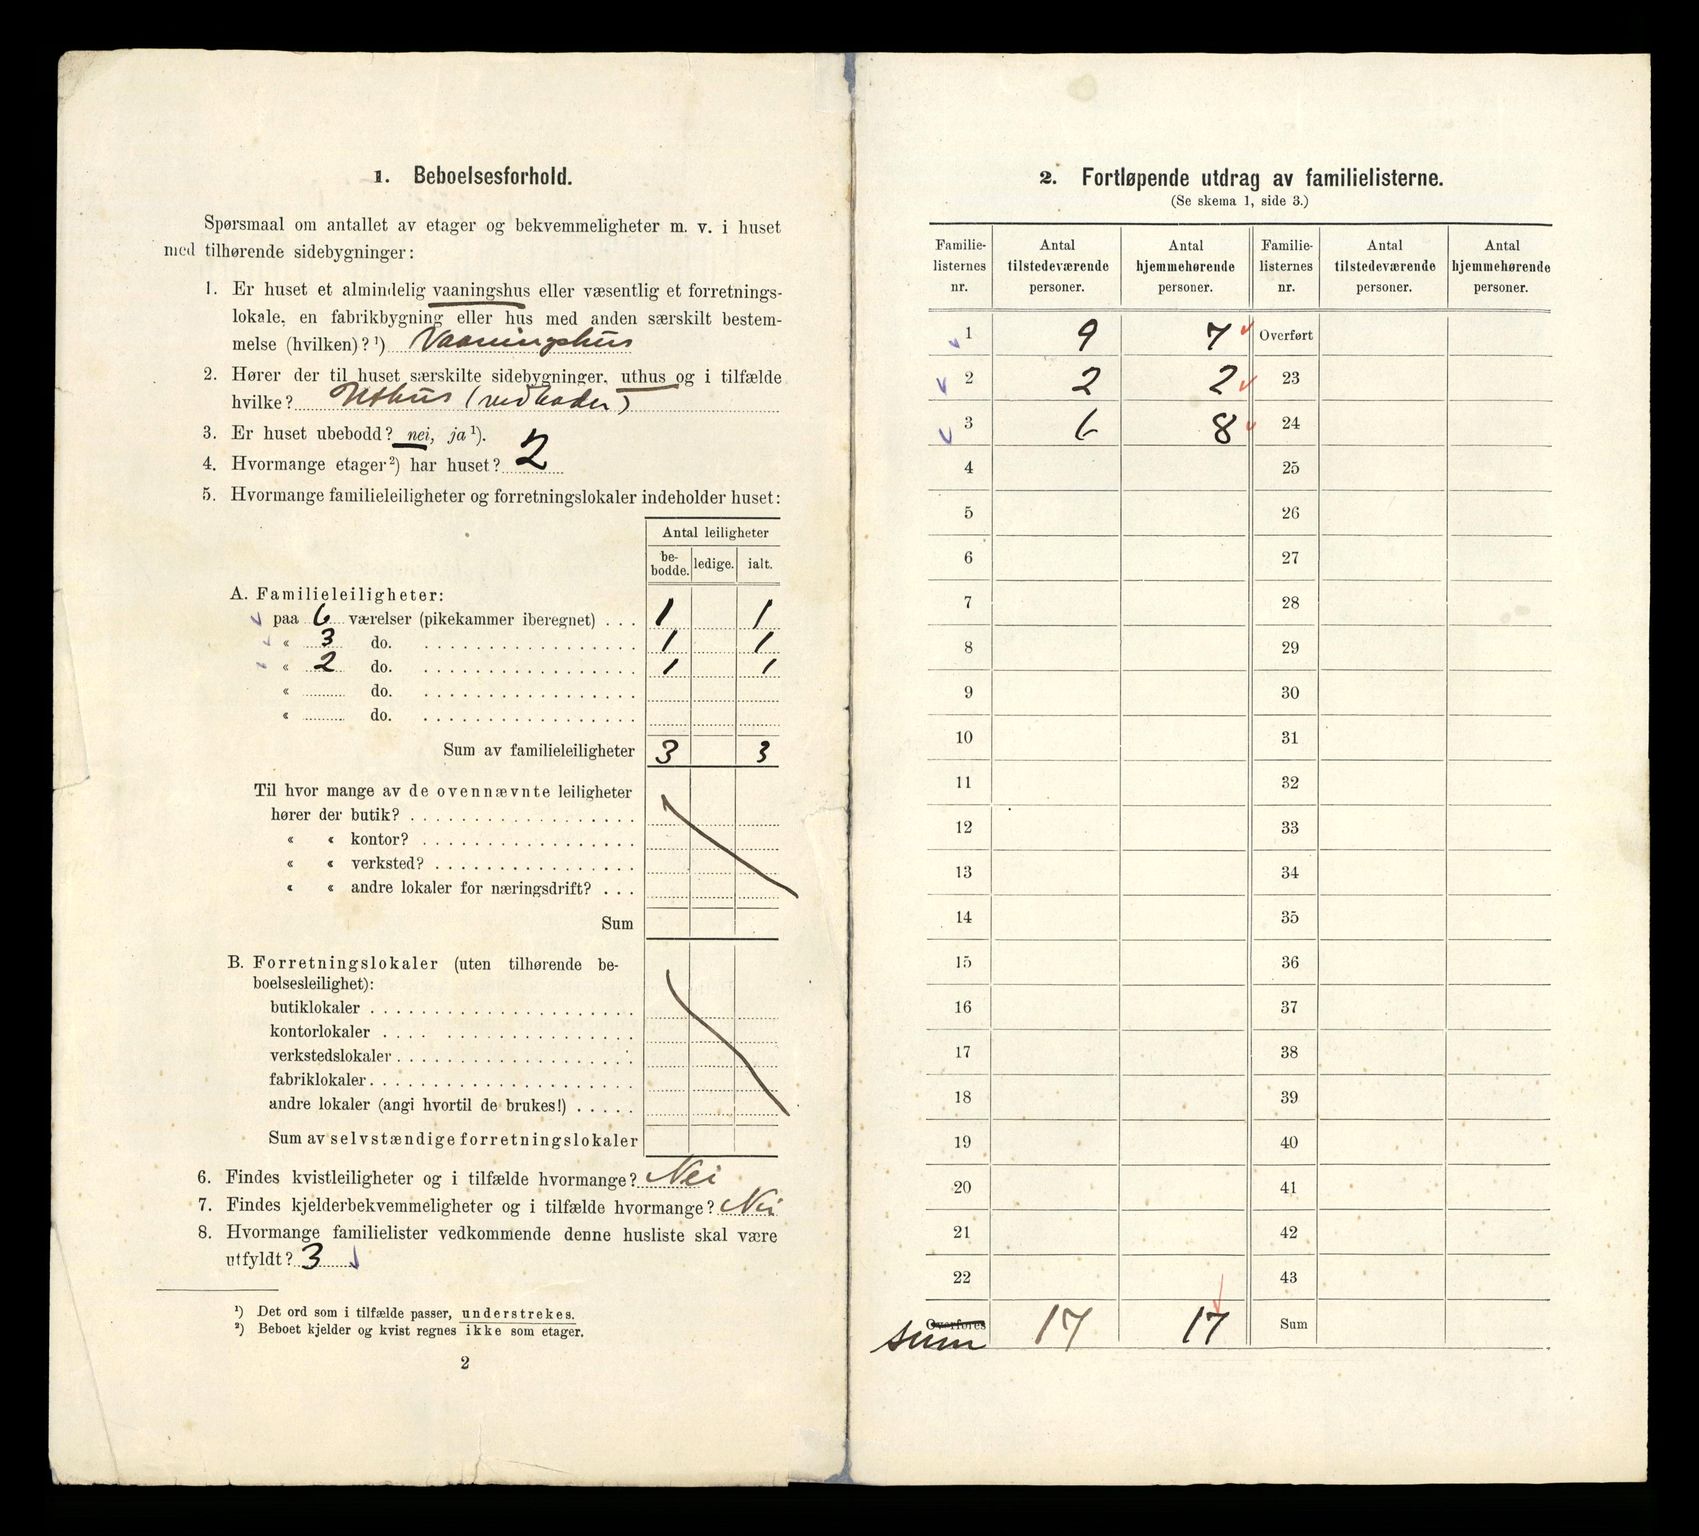 1. Beboelsesforhold.
Spørsmaal om antallet av etager og bekvemmeligheter m. v. i huset
med tilhørende sidebygninger:
1. Er huset et almindelig vaaningshus eller væsentlig et forretnings-
lokale, en fabrikbygning eller hus med anden særskilt bestem-
melse (hvilken)? ¹) Vaaningshus
2. Hører der til huset særskilte sidebygninger, uthus og i tilfælde
hvilke? Uthus (vedboder)
3. Er huset ubebodd? nei, ja ¹).
4. Hvormange etager ²) har huset? 2
5. Hvormange familieleiligheter og forretningslokaler indeholder huset:
Antal leiligheter
be-bodde. ledige. ialt.
A. Familieleiligheter:
paa 6 værelser (pikekammer iberegnet) . . . 1 1
« 3 do. 1 1
« 2 do. 1 1
« do.
« do.
Sum av familieleiligheter 3 3
Til hvor mange av de ovennævnte leiligheter
hører der butik?
« « kontor?
« « verksted?
« « andre lokaler for næringsdrift? . . .
Sum
B. Forretningslokaler (uten tilhørende be-
boelsesleilighet):
butiklokaler
kontorlokaler
verkstedslokaler
fabriklokaler
andre lokaler (angi hvortil de brukes!)
Sum av selvstændige forretningslokaler
6. Findes kvistleiligheter og i tilfælde hvormange? Nei
7. Findes kjelderbekvemmeligheter og i tilfælde hvormange? Nei
8. Hvormange familielister vedkommende denne husliste skal være
utfyldt? 3
¹) Det ord som i tilfælde passer, understrekes.
²) Beboet kjelder og kvist regnes ikke som etager.
2
2. Fortløpende utdrag av familielisterne.
(Se skema 1, side 3.)
Familie-listernes nr. Antal tilstedeværende personer. Antal hjemmehørende personer. Familie-listernes nr. Antal tilstedeværende personer. Antal hjemmehørende personer.
1 9 7 Overført
2 2 2 23
3 6 8 24
4 25
5 26
6 27
7 28
8 29
9 30
10 31
11 32
12 33
13 34
14 35
15 36
16 37
17 38
18 39
19 40
20 41
21 42
22 43
Overføres 17 17 Sum
sum